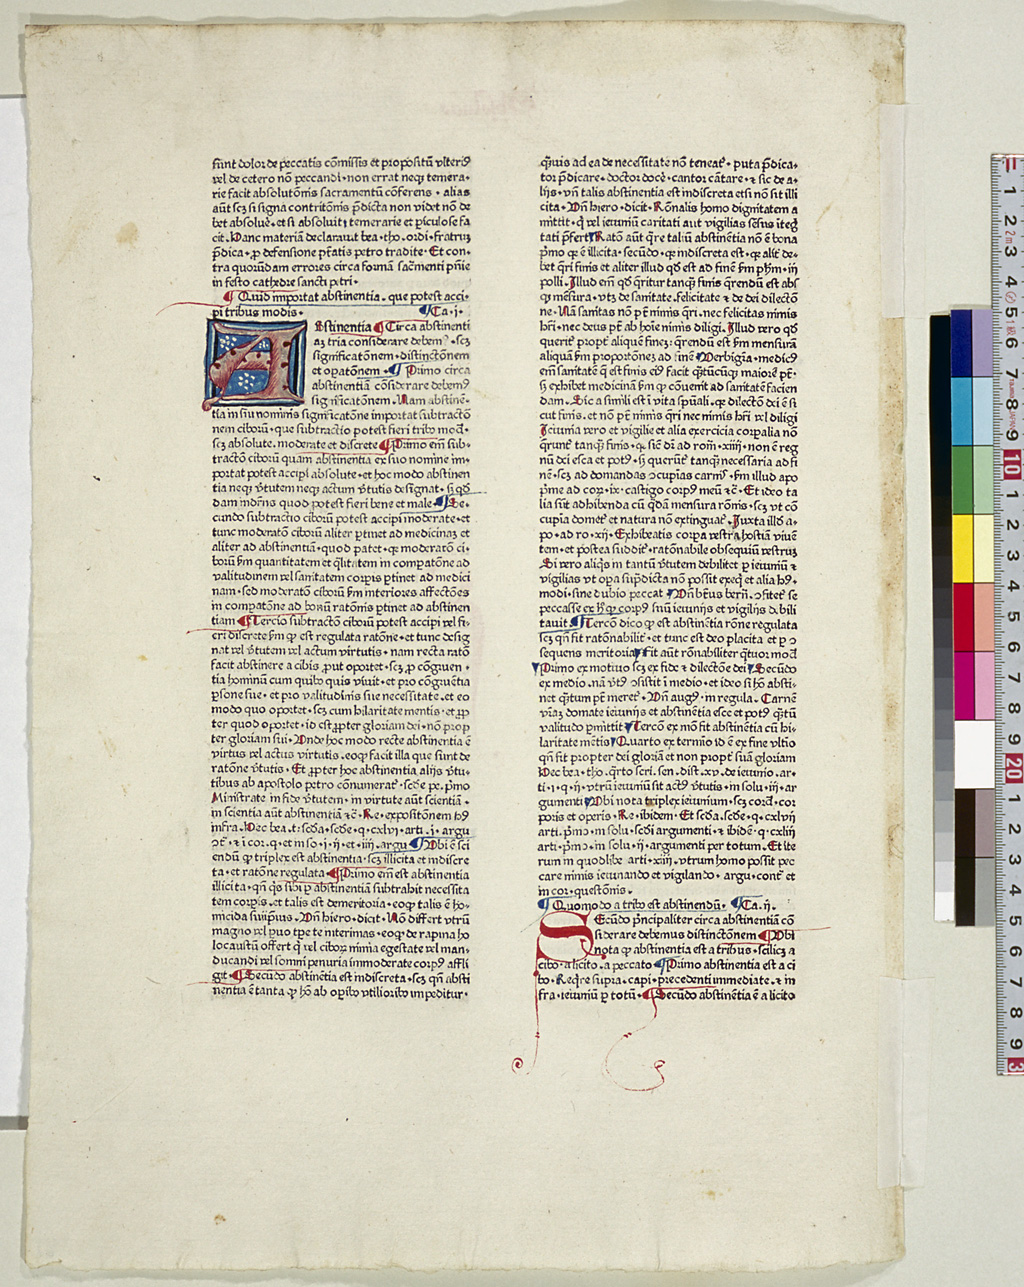 sunt dolor de peccatis cõmissis et propositũ vlteriꝰ
vel de cetero nõ peccandi · non errat neqȝ temera-
rie facit absolutõnis sacramentũ cõferens · alias
aũt scȝ si signa contritõnis p̃dicta non videt nõ de
bet absoluẽ · et si absoluit temerarie et piculose fa
cit · Hanc materiã declarauit bea · tho · ordi · fratrũ
p̃dica · ꝓ defensione ptãtis petro tradite · Et con-
tra quorũdam errores circa formã sacm̃enti pnĩe
in festo cathedre sancti petri ·
Quid importat abstinentia · que potest acci-
pi tribus modis · Ca · i ·
Abstinentia Circa abstinenti
aȝ tria considerare debemꝰ · scȝ
significatõnem · distinctõnem
et opatõnem · Primo circa
abstinentiã cõsiderare debemꝰ
significatõnem · Nam abstinẽ-
tia in sui nominis significatõne importat subtractõ
nem ciborũ · que subtractio potest fieri tribꝰ modꝭ ·
scȝ absolute · moderate et discrete Primo em̃ sub-
tractõ ciborũ quam abstinentia ex suo nomine im-
portat potest accipi absolute · et hoc modo abstinen
tia neqȝ v̾tutem neqȝ actum v̾tutis designat · sȝ qđ
dam indr̃ns quod potest fieri bene et male Se-
cundo subtractio ciborũ potest accipi moderate · et
tunc moderatõ ciborũ aliter ptinet ad medicinaȝ et
aliter ad abstinentiã · quod patet · qꝛ moderatõ ci-
borũ ẜm quantitatem et q̃litatem in compatõne ad
valitudinem vel sanitatem corpis ptinet ad medici
nam · sed moderatõ ciborũ ẜm interiores affectões
in compatõne ad bonũ ratõnis ptinet ad abstinen
tiam Tercio subtractõ ciborũ potest accipi vel fi-
eri discrete ẜm ꝙ est regulata ratõne · et tunc desig
nat vel v̾tutem vel actum virtutis · nam recta ratõ
facit abstinere a cibis ꝓut oportet · scȝ ꝓ cõgruen-
tia hominũ cum quibꝰ quis viuit · et pro cõgruẽtia
p̱sone sue · et pro valitudinis sue necessitate · et eo
modo quo oportet · scȝ cum hilaritate mentis · et ꝓp
ter quod oportet · id est ꝓpter gloriam dei · nõ prop
ter gloriam sui · Unde hoc modo recte abstinentia ẽ
virtus vel actus virtutis · eoqȝ facit illa que sunt de
ratõne v̾tutis · Et ꝓpter hoc abstinentia alijs v̾tu-
tibus ab apostolo petro cõnumeratꝰ · scđe pe · pͥmo
Ministrate in fide v̾tutem · in virtute aũt scientiã ·
in scientia aũt abstinentiã ⁊c̃ · Re · expositõnem hꝰ
infra · Hec bea · t · scđa · scđe · q · cxlvi · arti · i · argu
ꝯͭ · ⁊ i cor · q · et in so · i · ij · et iiij · argu Ubi ẽ sci
endũ ꝙ triplex est abstinentia · scȝ illicita et indiscre
ta · et ratõne regulata Primo em̃ est abstinentia
illicita · qñ qͥs sibi ꝑ abstinentiã subtrahit necessita
tem corpis · et talis est demeritoria · eoqȝ talis ẽ ho-
micida suiip̃ius · Uñ hiero · dicit · Nõ differt vtrũ
magno vel puo tp̃e te interimas · eoqȝ de rapina ho
locaustũ offert qͥ vel ciborũ nimia egestate vel man-
ducandi vel somni penuria immoderate corpꝰ affli
git · Secũdo abstinẽtia est indiscreta · scȝ qñ absti
nentia ẽ tanta ꝙ hõ ab opibꝰ vtilioribꝰ impeditur ·
q̃uis ad ea de necessitate nõ teneatꝰ · puta p̃dica-
tor p̃dicare · doctor docẽ · cantor cãtare · ⁊ sic de a-
lijs · vñ talis abstinentia est indiscreta etsi nõ sit illi
cita · Uñ hiero · dicit · Rõnalis homo dignitatem a
mittit · qͥ vel ieiuniũ caritati aut vigilias sẽsus iteg̾
tati p̃fert Ratõ aũt q̃re taliũ abstinẽtia nõ ẽ bona
pͥmo qꝛ ẽ illicita · secũdo · qꝛ indiscreta est · qꝛ aliť de-
bet q̃ri finis et aliter illud qđ est ad finẽ ẜm phm̃ · iij
polli · Illud em̃ qđ q̃ritur tanqȝ finis q̃rendũ est absqȝ
qȝ mẽsura · vtȝ de sanitate · felicitate ⁊ de dei dilectõ
ne · Nã sanitas nõ pt̃ nimis q̃ri · nec felicitas nimis
hr̃i · nec deus pt̃ ab hoĩe nimis diligi · Illud vero qđ
querit̃ propt̾ alique fineȝ · querendũ est ẜm mensurã
aliquã ẜm proportõneȝ ad finẽ Uerbigr̃a · medicꝰ
em̃ sanitatẽ q̃ est finis eiꝰ facit q̃tũcũqȝ maiorẽ pt̃ ·
sȝ exhibet medicinã ẜm ꝙ cõuenit ad sanitatẽ facien
dam · Sic a simili est i vita sp̃uali · qꝛ dilectõ dei ẽ si
cut finis · et nõ pt̃ nimis q̃ri nec nimis hr̃i vel diligi
Ieiunia vero et vigilie et alia exercicia corpalia nõ
q̃runt̃ tanqȝ finis · qꝛ sic̃ dr̃ ad rom̃ · xiiij · non ẽ reg
nũ dei esca et potꝰ · sȝ querũt̃ tanqȝ necessaria ad fi
nẽ · scȝ ad domandas ꝯcupias carnis̃ · ẜm illud apo
pͥme ad cor · ix · castigo corpꝰ meũ ⁊c̃ · Et ideo ta
lia sũt adhibenda cũ q̃dã mensura rõnis · scȝ vt cõ
cupia domet̃ et natura nõ extinguat̃ · Iuxta illđ a-
po · ad ro · xij · Exhibeatis corpa vestra hostiã viuẽ
tem · et postea suddit̃ · ratõnabile obsequiũ vestrũ
Si vero aliqͥs in tantũ v̾tutem debilitet ꝑ ieiuniũ ⁊
vigilias vt opa sup̃dicta nõ possit exeqͥ et alia hꝰ-
modi · sine dubio peccat Uñ btũs bern̾ · ꝯfitet̃ se
peccasse ex hͦ qꝛ corpꝰ suũ ieiunijs et vigilijs debili
tauit Tercõ dico ꝙ est abstinẽtia rõne regulata
scȝ qñ fit ratõnabilit̾ · et tunc est deo placita et ꝑ ꝯ
sequens meritoria Fit aũt rõnabiliter q̃tuor modꝭ
Primo ex motiuo scȝ ex fide ⁊ dilectõne dei Secũdo
ex medio · nã v̾tꝰ ꝯsistit i medio · et ideo si hõ absti-
net q̃tum pt̃ meret̃ · Uñ augꝰ · in regula · Carnẽ
vr̃aȝ domate ieiunijs et abstinẽtia esce et potꝰ q̃tũ
valitudo pͥmittit Tercõ ex mõ fit abstinẽtia cũ hi-
laritate mẽtis Quarto ex termĩo id ẽ ex fine vltĩo
qñ fit propter dei gloriã et non propt̾ suã gloriam
Hec bea · tho · q̃rto scri · sen · dist · xv · de ieiunio · ar-
ti · i · q · ij · vtrũ ieiuniũ sit actꝰ v̾tutis · in solu · iij · ar
gumenti Ubi nota triplex ieiunium · scȝ cordꝭ · cor
poris et operis · Re · ibidem · Et scđa · scđe · q · cxlvii
arti · pͥmo · in solu · scđi argumenti · ⁊ ibidẽ · q · cxliij
arti · pͥmo · in solu · ij · argumenti per totum · Et ite
rum in quodlibꝫ · arti · xiij · vtrum homo possit pec
care nimis ieiunando et vigilando · argu · cont̾ et
in cor · questõnis ·
Quomodo a tribꝰ est abstinendũ · Ca · ij ·
Secũdo pͥncipaliter circa abstinentiã cõ
siderare debemus distinctõnem Ubi
nota ꝙ abstinentia est a tribus · scilicȝ a
cibo · a licito · a peccato Primo abstinentia est a ci
bo · Req̃re supra · capi · precedenti immediate · ⁊ in
fra · ieiuniũ ꝑ totũ · Secũdo abstinẽtia ẽ a licito
1 2 3 4 5 6 7 8 9 10 1 2 3 4 5 6 7 8 9 20 1 2 3 4 5 6 7 8 9 3